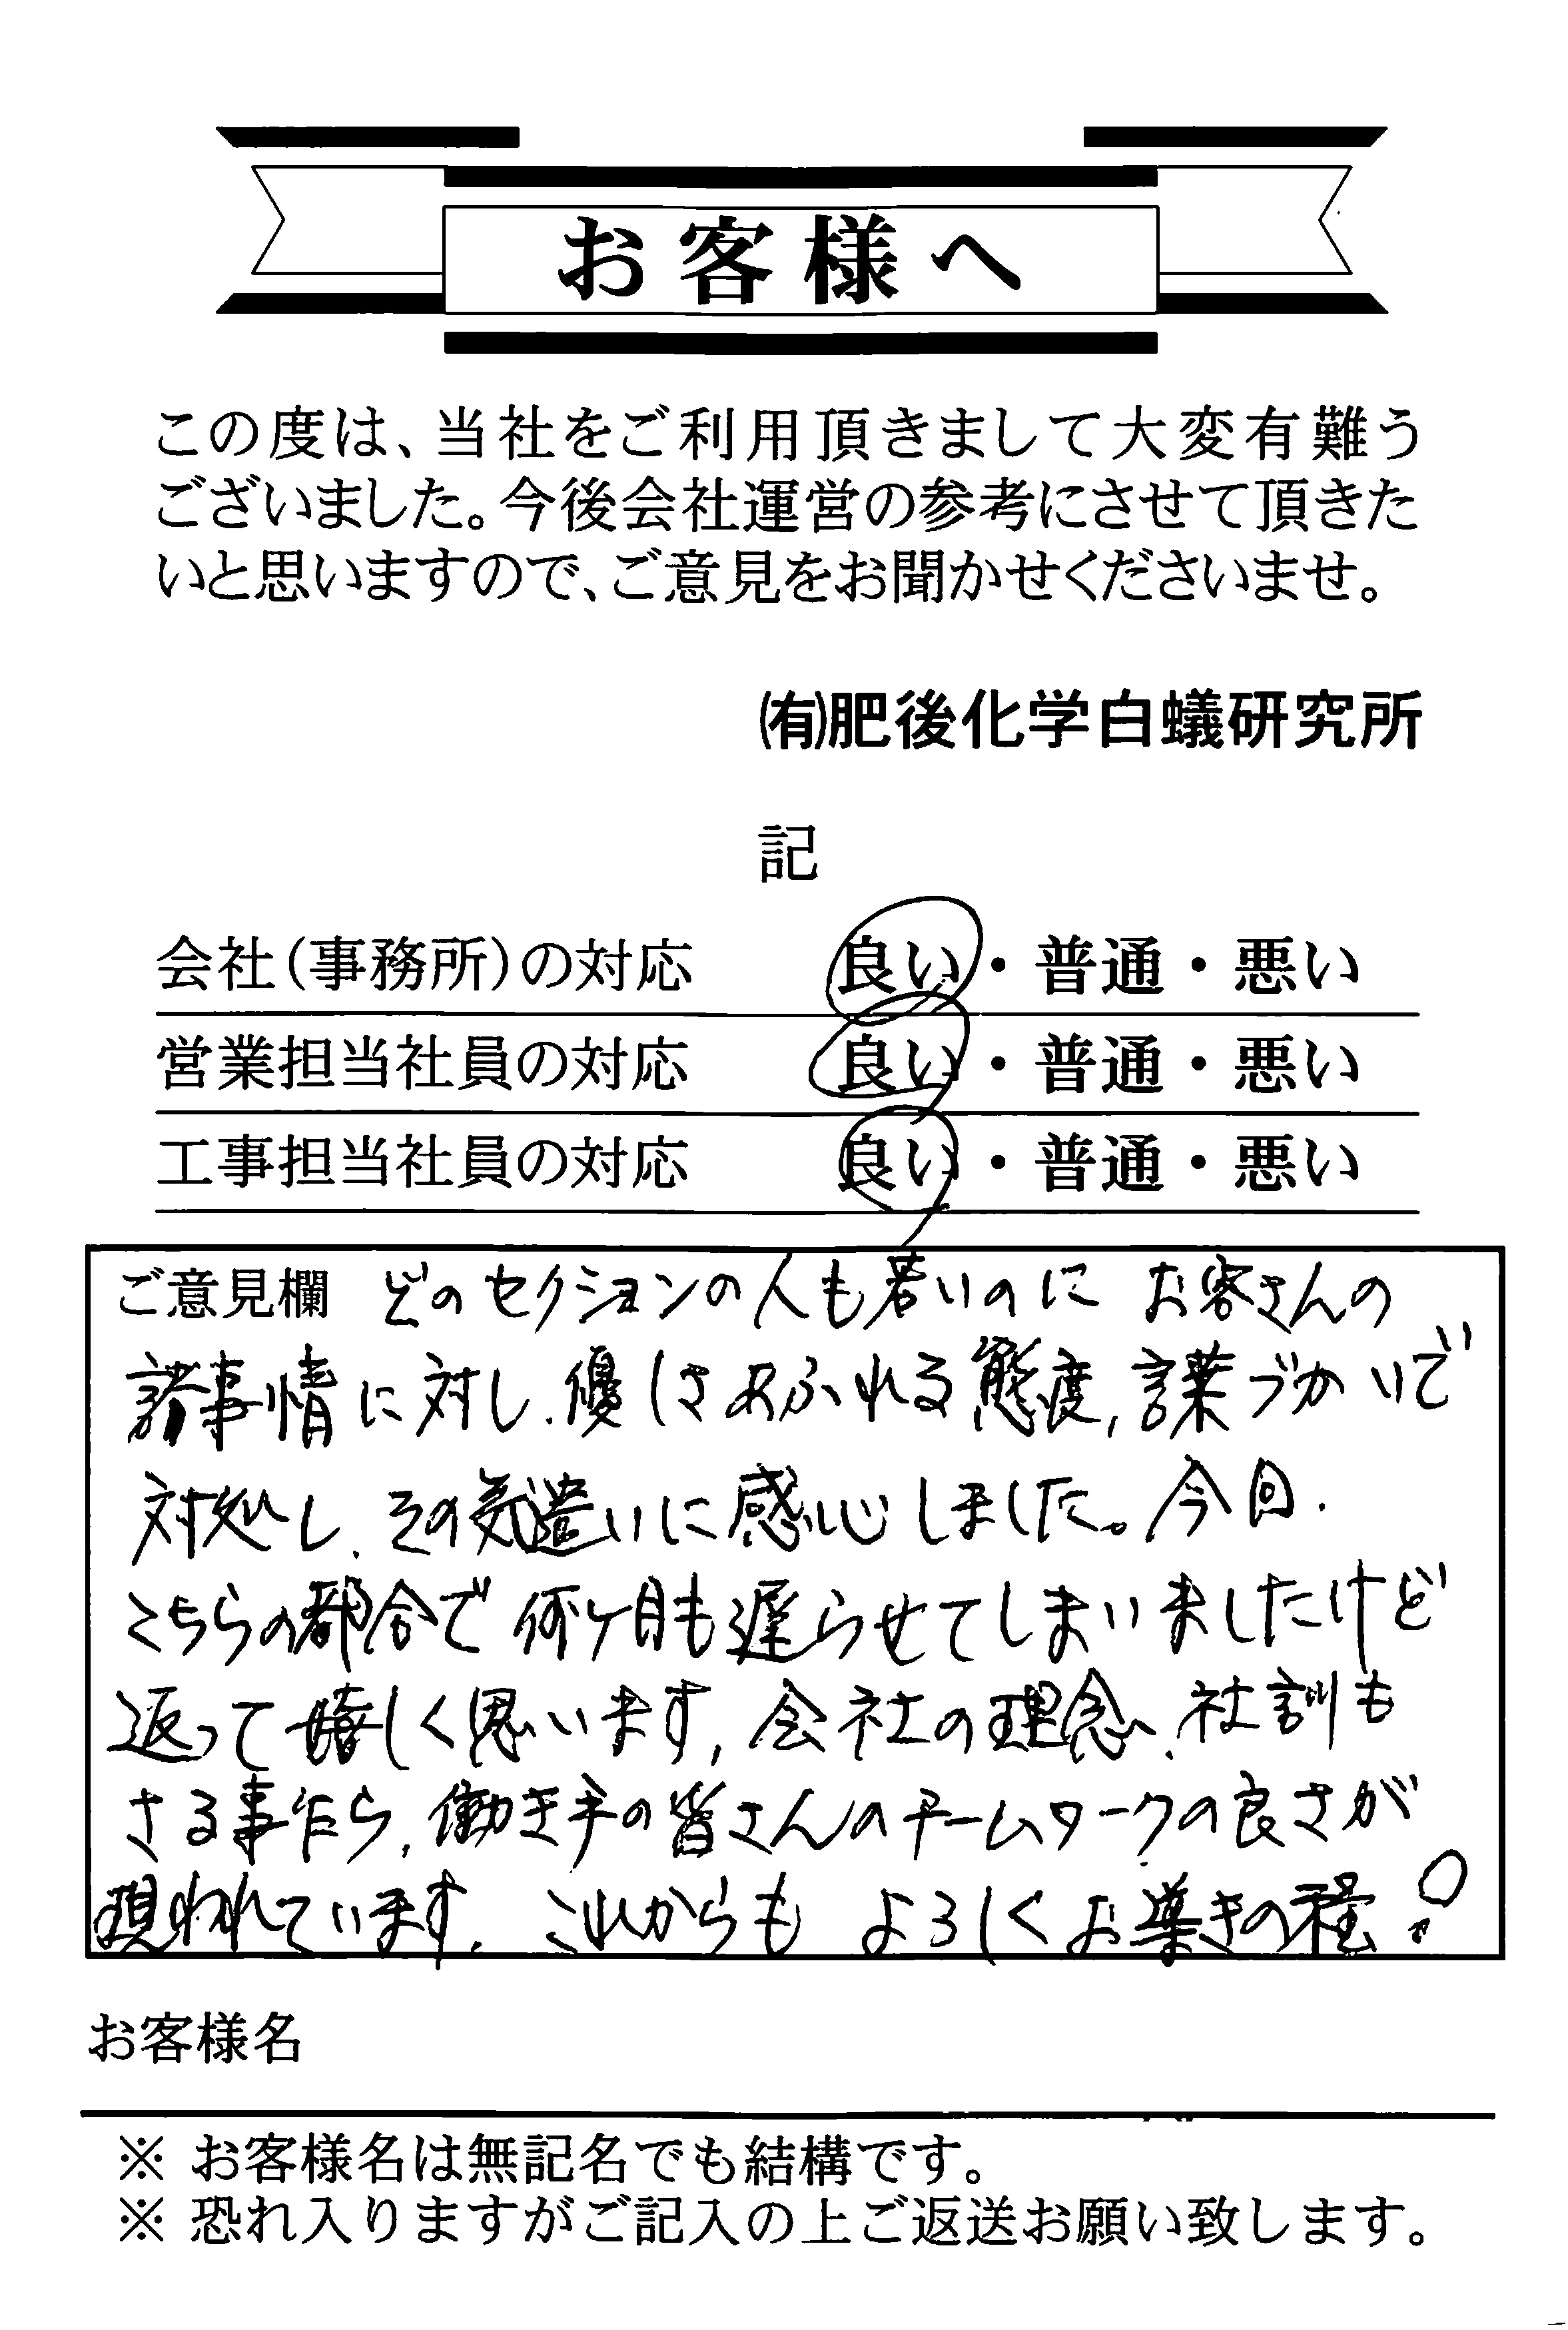 お客様へ
この度は、当社をご利用頂きまして大変有難う
ございました。今後会社運営の参考にさせて頂きた
いと思いますので、ご意見をお聞かせくださいませ。
㈲肥後化学白蟻研究所
記
会社(事務所)の対応 良い・普通・悪い
営業担当社員の対応 良い・普通・悪い
工事担当社員の対応 良い・普通・悪い
ご意見欄 どのセクションの人も若いのに お客さんの
諸事情に対し、優しさあふれる態度、言葉づかいで
対処し、その気遣いに感心しました。今回、
こちらの都合で何ケ月も遅らせてしまいましたけど
返って嬉しく思います、会社の理念、社訓も
さる事乍ら、働き手の皆さんのチームワークの良さが
現われています、これからも よろしくお導きの程!
お客様名
※ お客様名は無記名でも結構です。
※ 恐れ入りますがご記入の上ご返送お願い致します。